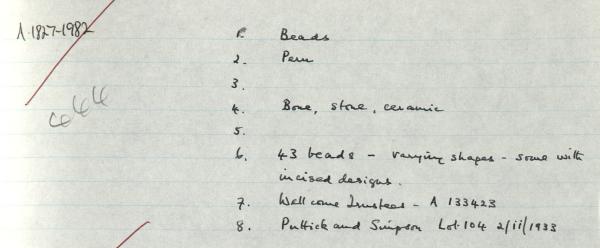 A.1827-1982
1. Beads
2. Peru
3.
444
4. Bone, stone, ceramic
5.
6. 43 beads - varying shapes - some with
incised designs.
7. Wellcome Trustees - A 133423
8. Puttick and Simpson Lot. 104 2/ii/1933